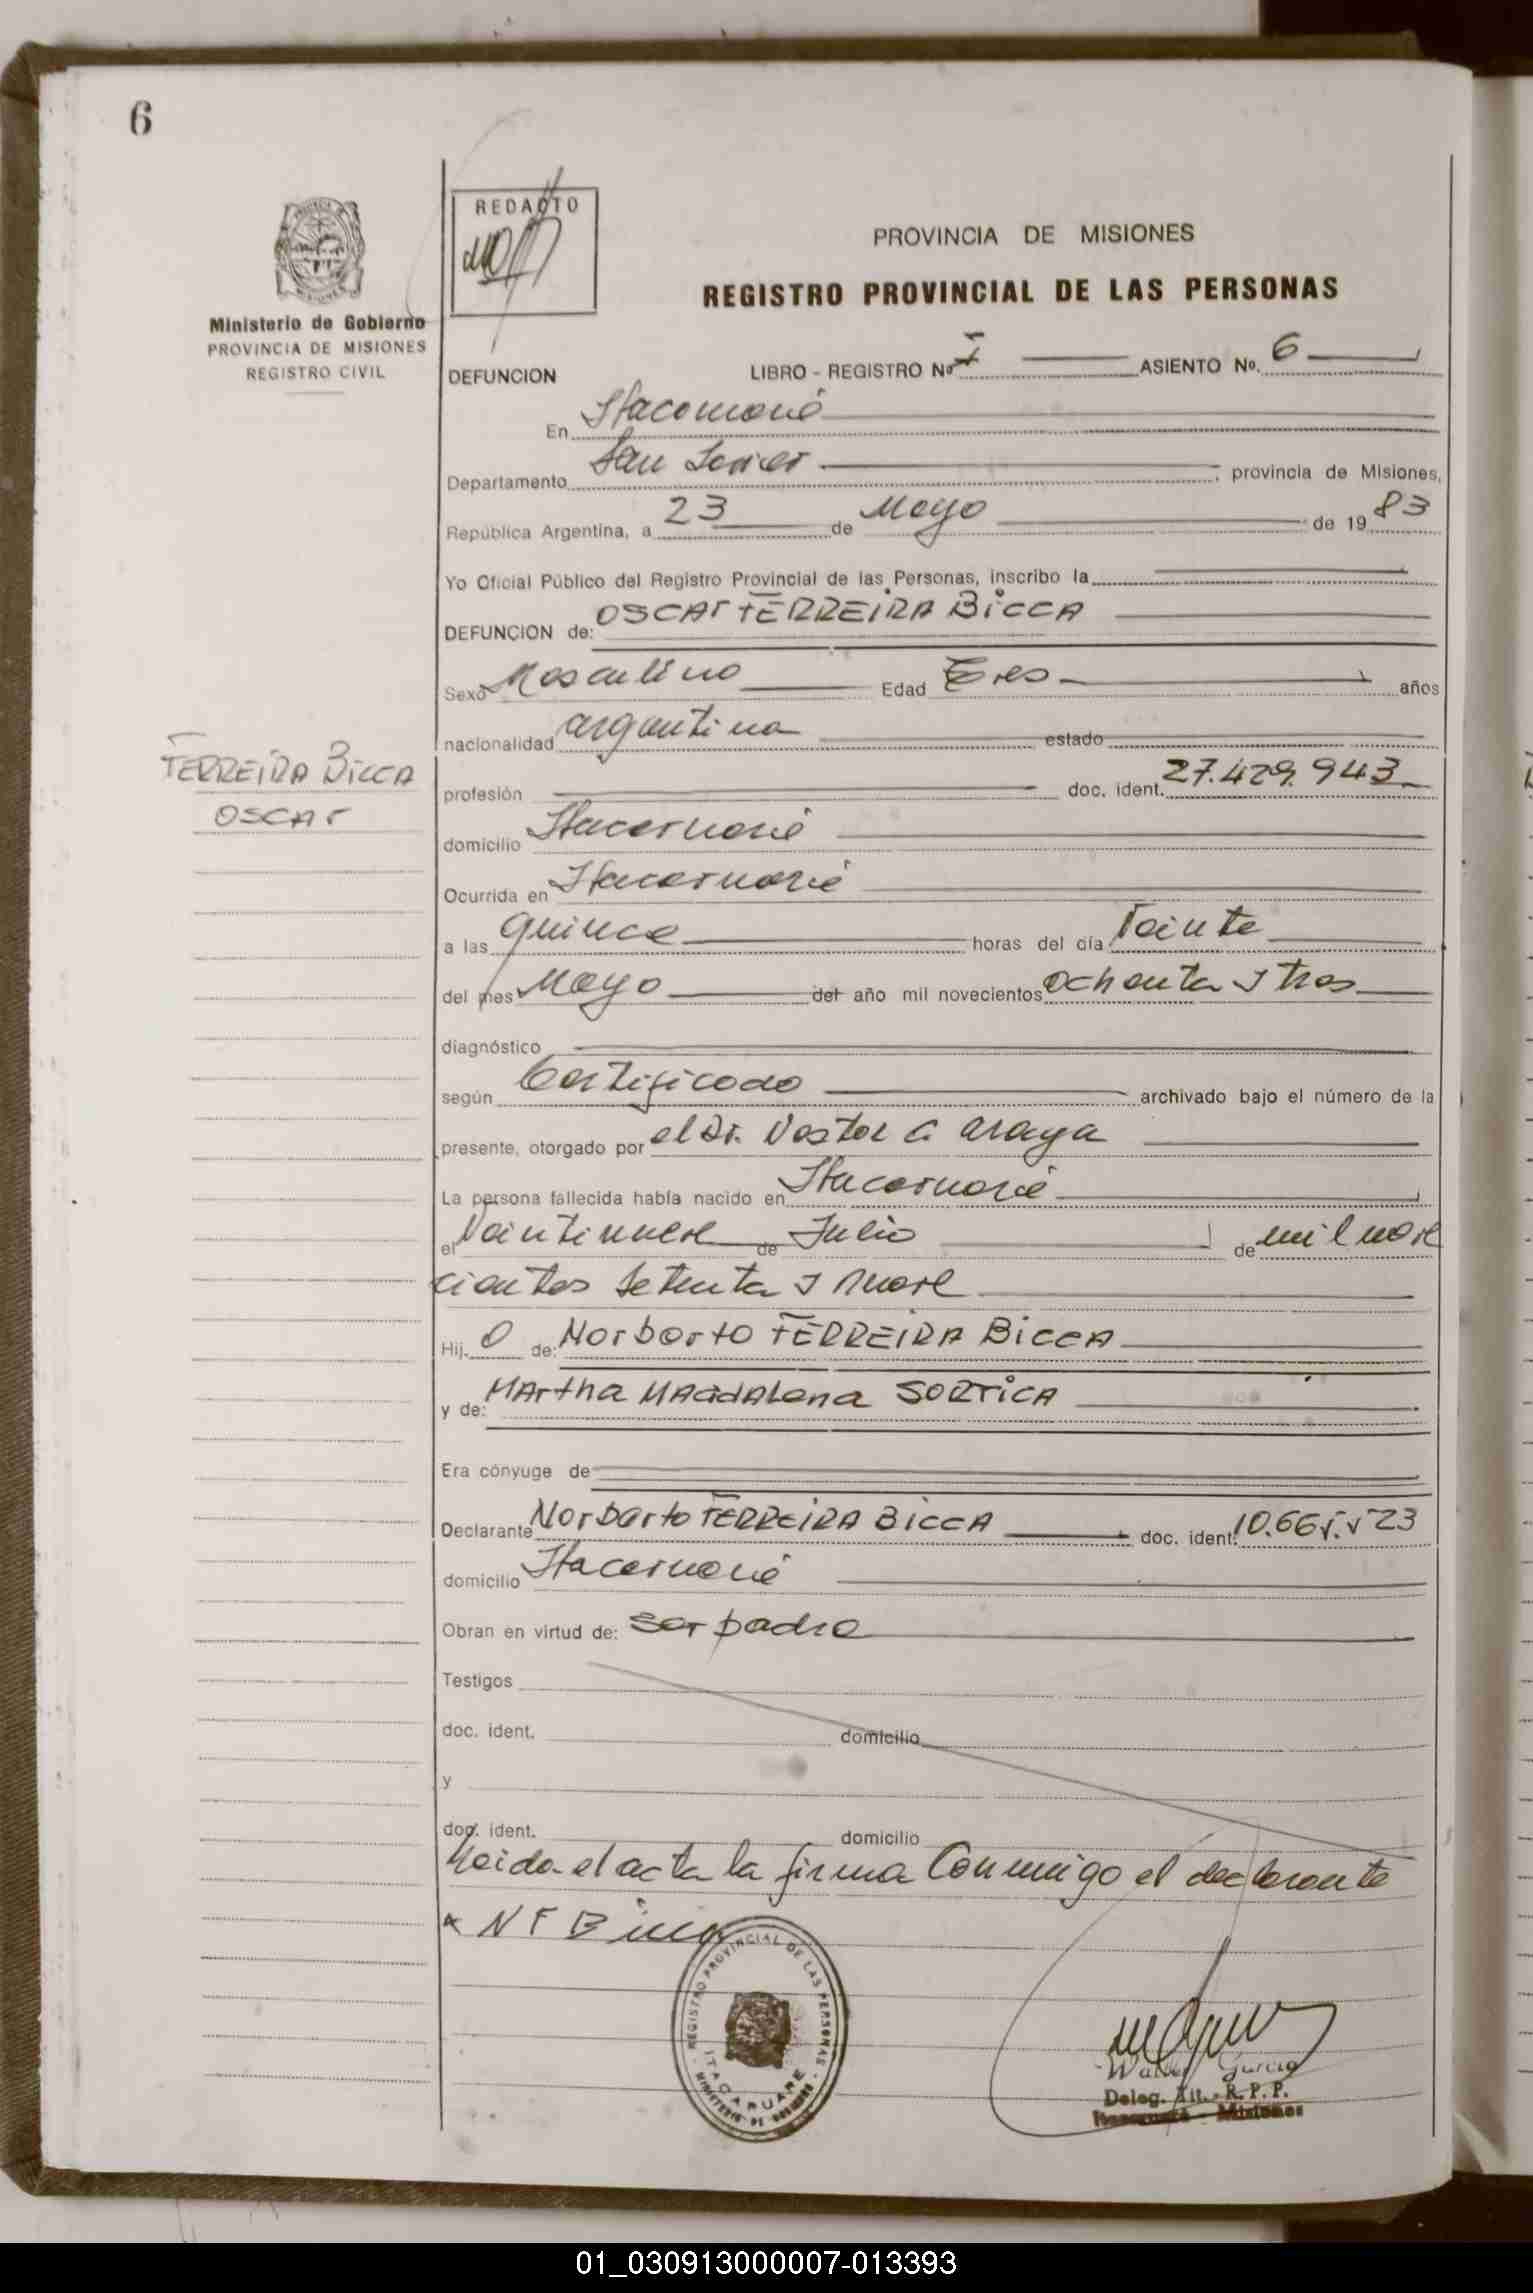 6
REDACTO
PROVINCIA DE MISIONES
REGISTRO PROVINCIAL DE LAS PERSONAS
Ministerio de Gobierno
PROVINCIA DE MISIONES
REGISTRO CIVIL
DEFUNCION LIBRO - REGISTRO Nº I ASIENTO Nº. 6
En Itacaruaré
Departamento San Javier, provincia de Misiones,
República Argentina, a 23 de Mayo de 19 83
Yo Oficial Público del Registro Provincial de las Personas, inscribo la
DEFUNCION de: OSCAr FERREIRA BiCCA
Sexo Masculino Edad Tres años
nacionalidad argentina estado
FERREIRA BiCCA
OSCAr
profesión doc. ident. 27.429.943
domicilio Itacaruaré
Ocurrida en Itacaruaré
a las quince horas del día Veinte
del mes Mayo del año mil novecientos ochenta y tres
diagnóstico
según Certificado archivado bajo el número de la
presente, otorgado por el Dr. Nestor C. Araya
La persona fallecida había nacido en Itacaruaré
el Veintinueve de Julio de mil nove
cientos setenta y nueve
Hij. O de: Norberto FERREIRA BiCCA
y de: MArthA MAgdALena SORTiCA
Era cónyuge de
Declarante Norberto FERREIRA BiCCA doc. ident. 10.665.523
domicilio Itacaruaré
Obran en virtud de: ser padre
Testigos
doc. ident. domicilio
y
doc. ident. domicilio
Leida el acta la firma Conmigo el declarante
x N F Bicca
REGISTRO PROVINCIAL DE LAS PERSONAS
ITACARUARE
MINISTERIO DE GOBIERNO
Deleg. Tit. - R. P. P.
Itacaruaré - Misiones
01_030913000007-013393